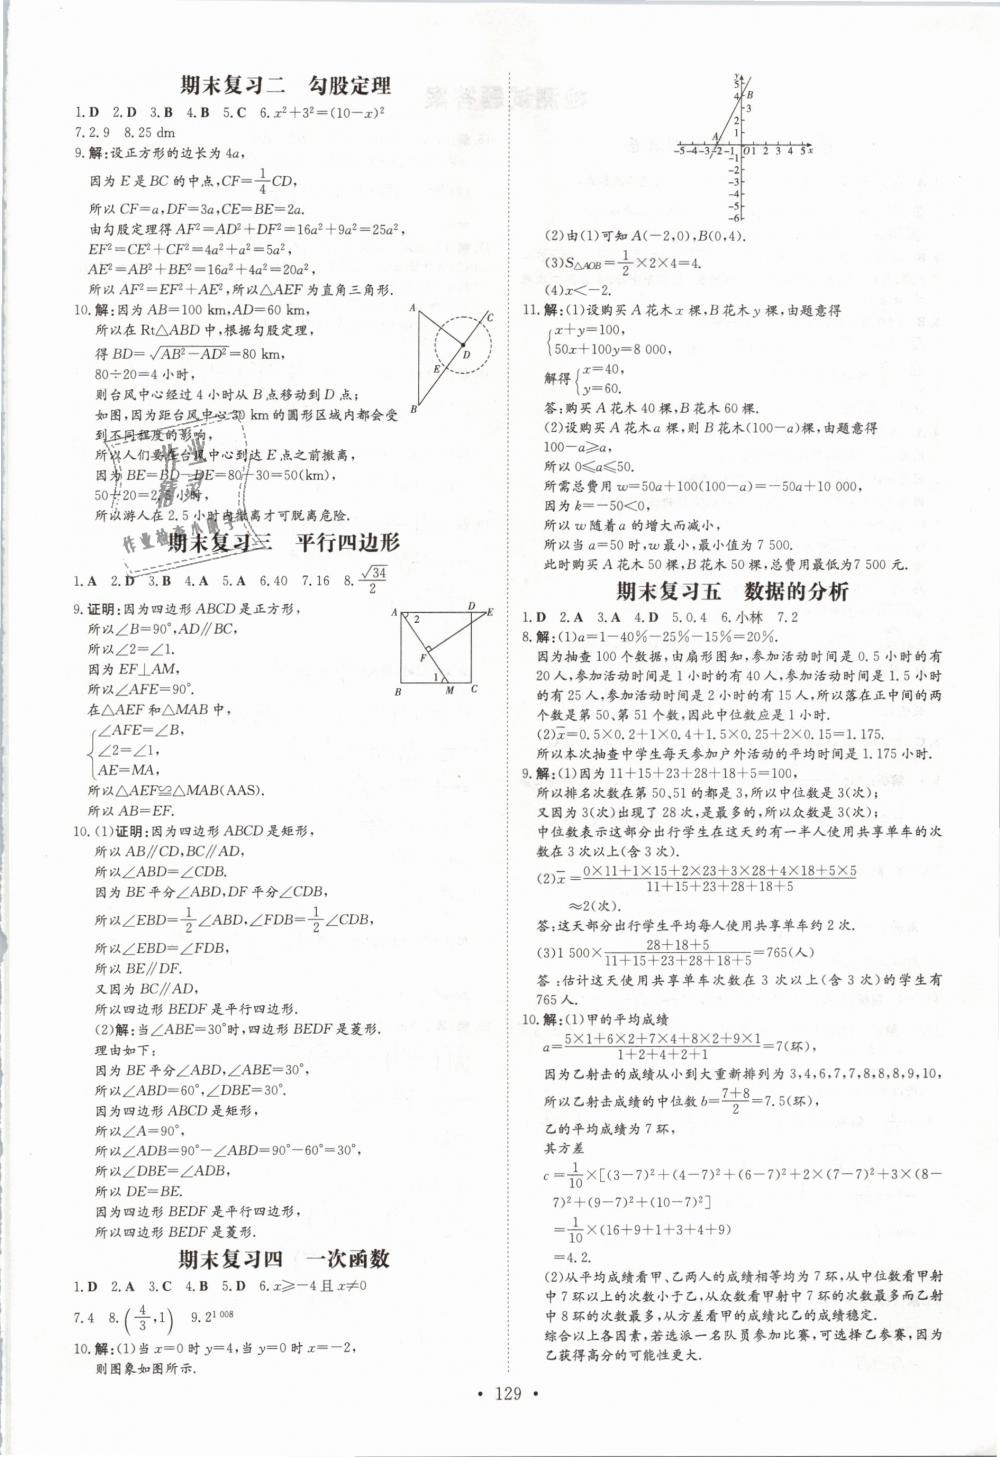 期末复习二　勾股定理
1.D 2.D 3.B 4.B 5.C 6.x²+3²=(10-x)²
7.2.9 8.25 dm
9.解:设正方形的边长为4a,
因为E是BC的中点,CF=1/4CD,
所以CF=a,DF=3a,CE=BE=2a.
由勾股定理得AF²=AD²+DF²=16a²+9a²=25a²,
EF²=CE²+CF²=4a²+a²=5a²,
AE²=AB²+BE²=16a²+4a²=20a²,
所以AF²=EF²+AE²,所以△AEF为直角三角形.
10.解:因为AB=100 km,AD=60 km,
所以在Rt△ABD中,根据勾股定理,
得BD=√(AB²-AD²)=80 km,
80÷20=4小时,
则台风中心经过4小时从B点移动到D点;
如图,因为距台风中心30 km的圆形区域内都会受
到不同程度的影响,
所以人们要在台风中心到达E点之前撤离,
因为BE=BD-DE=80-30=50(km),
50÷20=2.5小时,
所以游人在2.5小时内撤离才可脱离危险.
A
C
D
E
B
期末复习三　平行四边形
1.A 2.D 3.B 4.A 5.A 6.40 7.16 8.√34/2
9.证明:因为四边形ABCD是正方形,
所以∠B=90°,AD∥BC,
所以∠2=∠1.
因为EF⊥AM,
所以∠AFE=90°.
在△AEF和△MAB中,
∠AFE=∠B,
∠2=∠1,
AE=MA,
所以△AEF≌△MAB(AAS).
所以AB=EF.
A D E
2
F
1
B M C
10.(1)证明:因为四边形ABCD是矩形,
所以AB∥CD,BC∥AD,
所以∠ABD=∠CDB.
因为BE平分∠ABD,DF平分∠CDB,
所以∠EBD=1/2∠ABD,∠FDB=1/2∠CDB,
所以∠EBD=∠FDB,
所以BE∥DF.
又因为BC∥AD,
所以四边形BEDF是平行四边形.
(2)解:当∠ABE=30°时,四边形BEDF是菱形.
理由如下:
因为BE平分∠ABD,∠ABE=30°,
所以∠ABD=60°,∠DBE=30°.
因为四边形ABCD是矩形,
所以∠A=90°,
所以∠ADB=90°-∠ABD=90°-60°=30°,
所以∠DBE=∠ADB,
所以DE=BE.
因为四边形BEDF是平行四边形,
所以四边形BEDF是菱形.
期末复习四　一次函数
1.D 2.A 3.C 4.B 5.D 6.x≥-4且x≠0
7.4 8.(4/3,1) 9.2^1 008
10.解:(1)当x=0时y=4,当y=0时x=-2,
则图象如图所示.
y
5
4 B
3
2
A 1
-5-4-3-2-1 O 1 2 3 4 5 x
-1
-2
-3
-4
-5
-6
(2)由(1)可知A(-2,0),B(0,4).
(3)S△AOB=1/2×2×4=4.
(4)x<-2.
11.解:(1)设购买A花木x棵,B花木y棵,由题意得
x+y=100,
50x+100y=8 000,
解得 x=40,
y=60.
答:购买A花木40棵,B花木60棵.
(2)设购买A花木a棵,则B花木(100-a)棵,由题意得
100-a≥a,
所以0≤a≤50.
所需总费用w=50a+100(100-a)=-50a+10 000,
因为k=-50<0,
所以w随着a的增大而减小,
所以当a=50时,w最小,最小值为7 500.
此时购买A花木50棵,B花木50棵,总费用最低为7 500元.
期末复习五　数据的分析
1.D 2.A 3.A 4.D 5.0.4 6.小林 7.2
8.解:(1)a=1-40%-25%-15%=20%.
因为抽查100个数据,由扇形图知,参加活动时间是0.5小时的有
20人,参加活动时间是1小时的有40人,参加活动时间是1.5小时
的有25人,参加活动时间是2小时的有15人,所以落在正中间的两
个数是第50、第51个数,因此中位数应是1小时.
(2)x̄=0.5×0.2+1×0.4+1.5×0.25+2×0.15=1.175.
所以本次抽查中学生每天参加户外活动的平均时间是1.175小时.
9.解:(1)因为11+15+23+28+18+5=100,
所以排名次数在第50、51的都是3,所以中位数是3(次);
又因为3(次)出现了28次,是最多的,所以众数是3(次);
中位数表示这部分出行学生在这天约有一半人使用共享单车的次
数在3次以上(含3次).
(2)x̄=(0×11+1×15+2×23+3×28+4×18+5×5)/(11+15+23+28+18+5)
≈2(次).
答:这天部分出行学生平均每人使用共享单车约2次.
(3)1 500×(28+18+5)/(11+15+23+28+18+5)=765(人)
答:估计这天使用共享单车次数在3次以上(含3次)的学生有
765人.
10.解:(1)甲的平均成绩
a=(5×1+6×2+7×4+8×2+9×1)/(1+2+4+2+1)=7(环),
因为乙射击的成绩从小到大重新排列为3,4,6,7,7,8,8,8,9,10,
所以乙射击成绩的中位数b=(7+8)/2=7.5(环),
乙的平均成绩为7环,
其方差
c=1/10×[(3-7)²+(4-7)²+(6-7)²+2×(7-7)²+3×(8-
7)²+(9-7)²+(10-7)²]
=1/10×(16+9+1+3+4+9)
=4.2.
(2)从平均成绩看甲、乙两人的成绩相等均为7环,从中位数看甲射
中7环以上的次数小于乙,从众数看甲射中7环的次数最多而乙射
中8环的次数最多,从方差看甲的成绩比乙的成绩稳定.
综合以上各因素,若选派一名队员参加比赛,可选择乙参赛,因为
乙获得高分的可能性更大.
• 129 •
作业
精灵
作业检查小助手